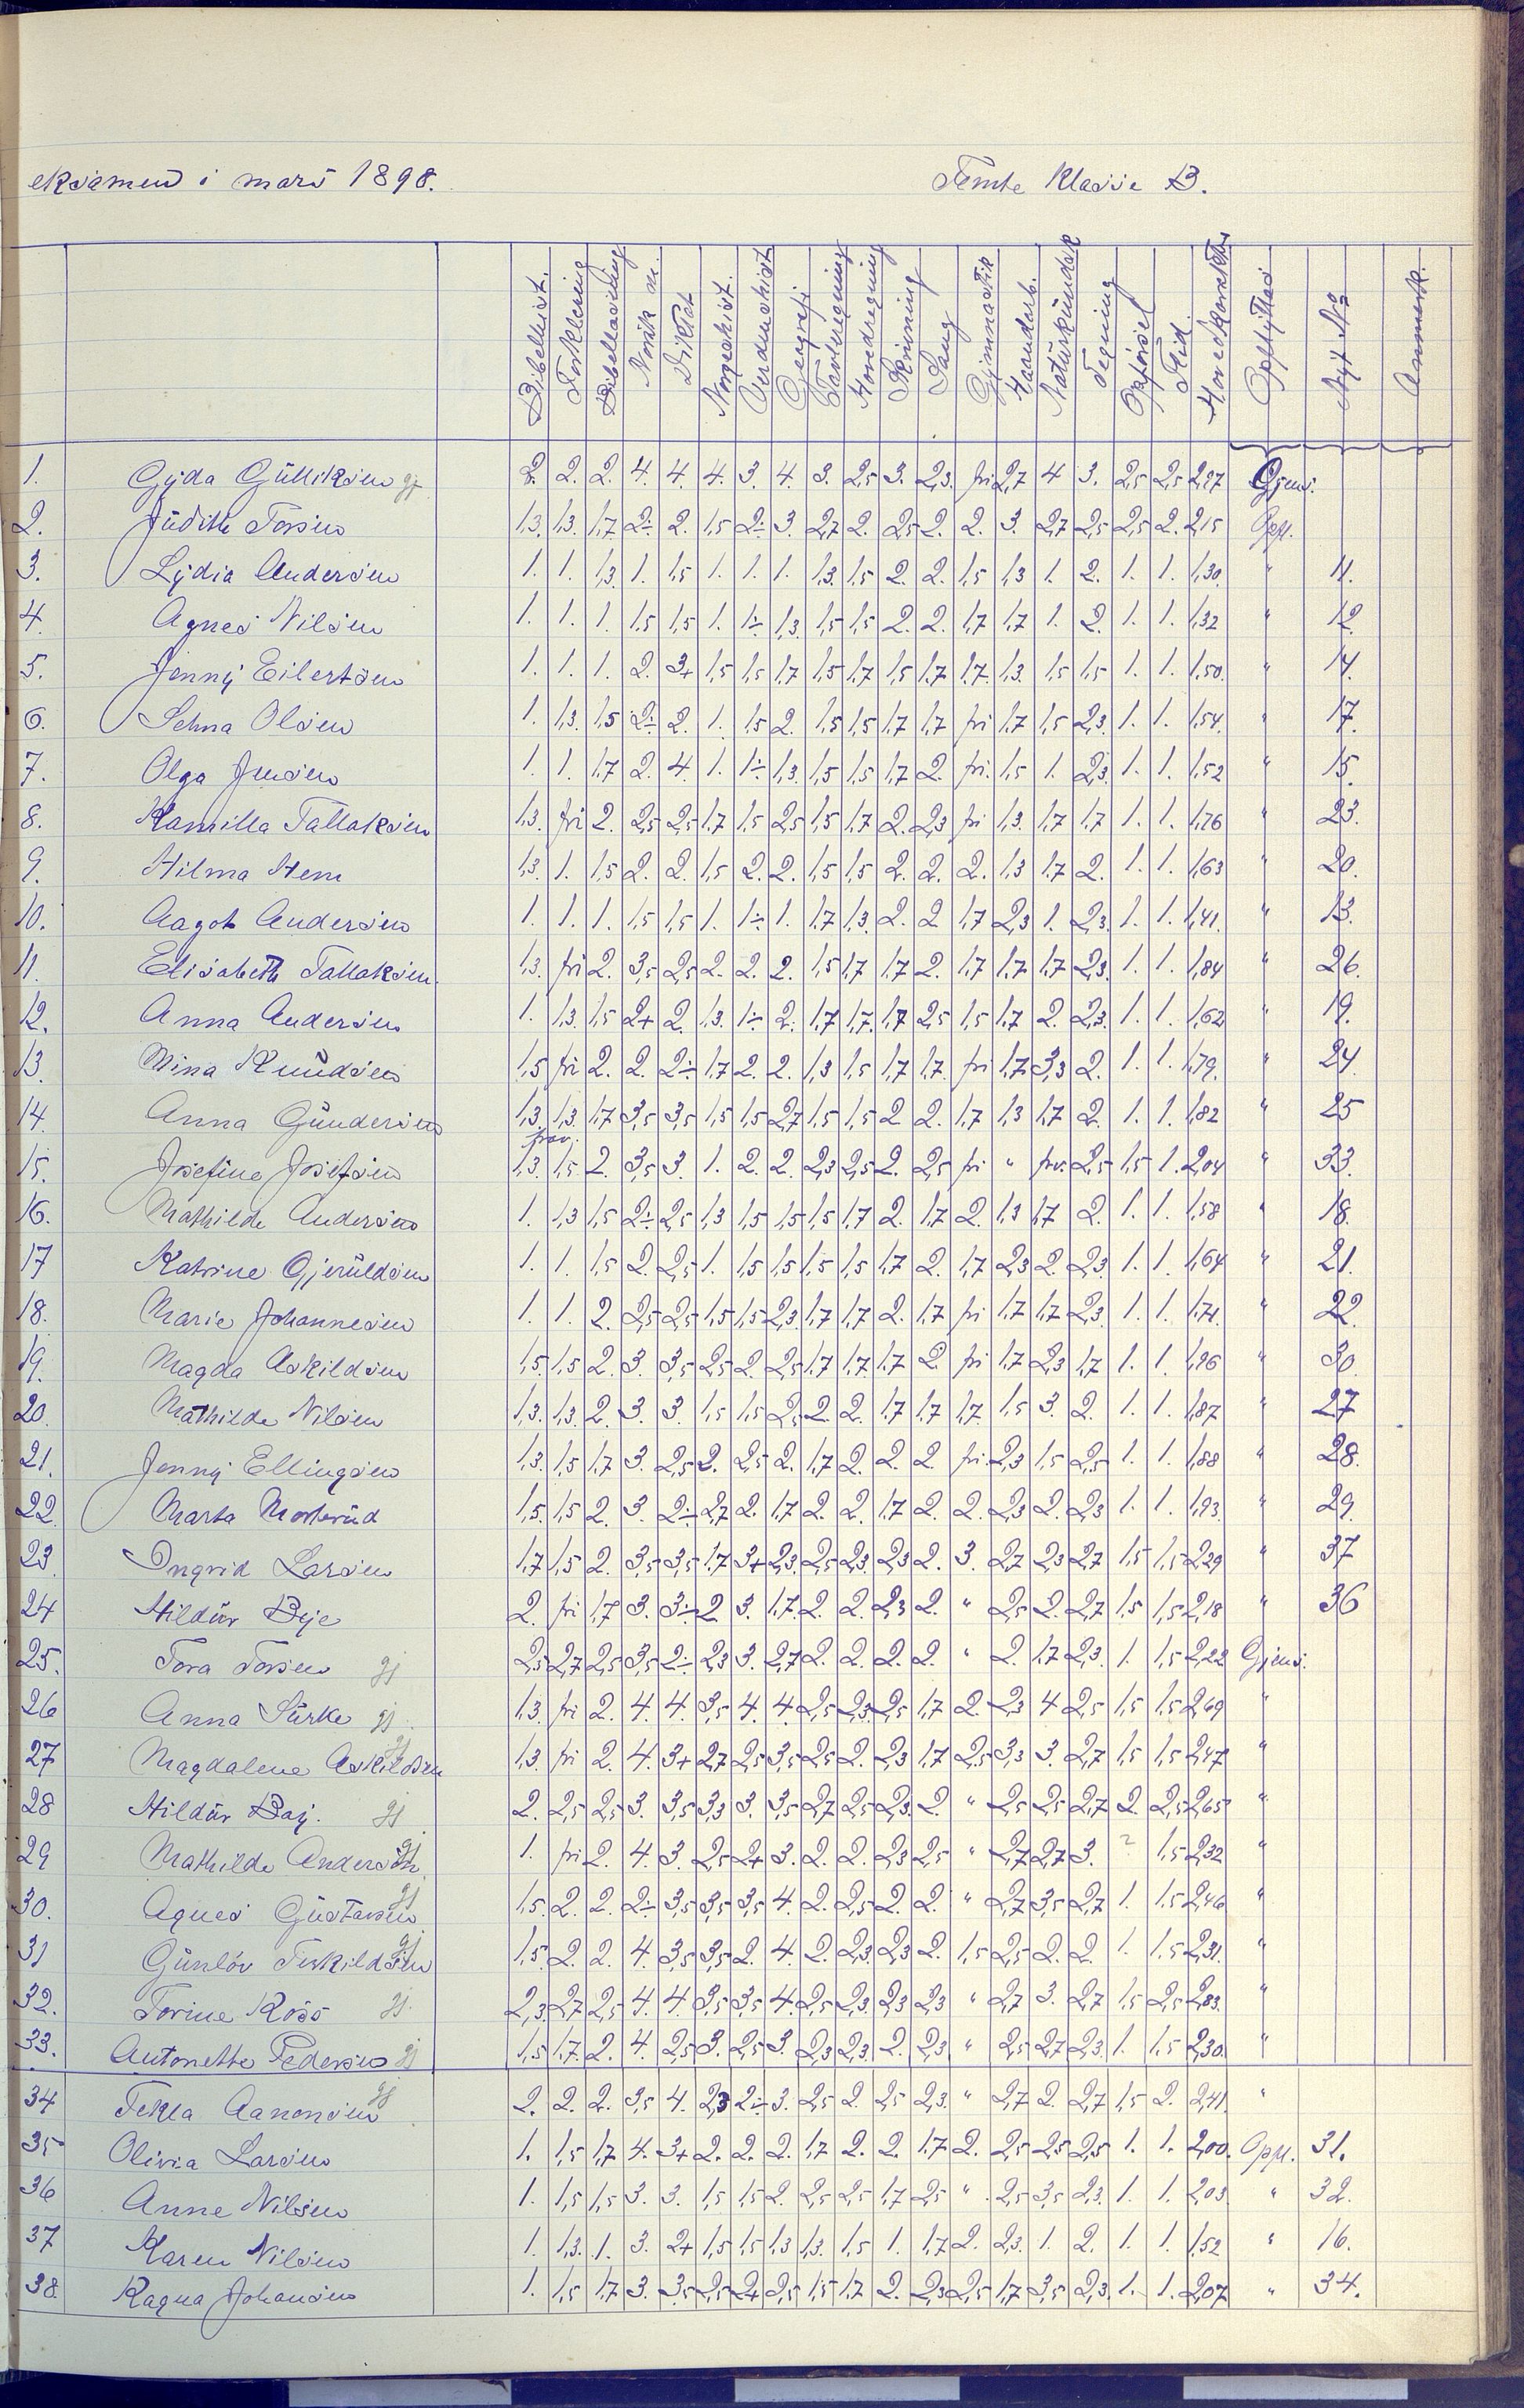 eksamen i mars 1898. Femte Klasse B.
Bibelhist. Forklaring Bibellæsning Norsk m. Diktat Norgeshist. Verdenshist Geografi Tavleregning Hovedregning Skrivning Sang Gymnastik Haandarb. Naturkundsk Tegning Opførsel Flid. Hovedkarakter Opflyttes Nyt № Anmerk.
1. Gyda Gulliksen gj 2. 2. 2. 4. 4. 4. 3. 4. 3. 2,5 3. 2,3. fri 2,7 4 3. 2,5 2,5 2,97 Gjens.
2. Judith Torsen 1,3. 1,3. 1,7 2÷ 2. 1,5 2÷ 3. 2,7 2. 2,5 2. 2. 3. 2,7 2,5 2,5 2. 2,15 Opfl.
3. Lydia Andersen 1. 1. 1,3. 1. 1,5 1. 1. 1. 1,3. 1,5 2. 2. 1,5 1,3 1. 2. 1. 1. 1,30. " 11.
4. Agnes Nilsen 1. 1. 1. 1,5 1,5 1. 1÷ 1,3. 1,5 1,5 2. 2. 1,7 1,7 1. 2. 1. 1. 1,32 " 12.
5. Jenny Eilertsen 1. 1. 1. 2. 3+ 1,5 1,5 1,7 1,5 1,7 1,5 1,7 1,7. 1,3. 1,5 1,5 1. 1. 1,50. " 14.
6. Selma Olsen 1. 1,3. 1,5 2÷ 2. 1. 1,5 2. 1,5 1,5 1,7 1,7 fri 1,7 1,5 2,3. 1. 1. 1,54. " 17.
7. Olga Jensen 1. 1. 1,7 2. 4. 1. 1÷ 1,3. 1,5 1,5 1,7 2. fri. 1,5 1. 2,3. 1. 1. 1,52 " 15.
8. Kamilla Tallaksen 1,3. fri 2. 2,5 2,5 1,7 1,5 2,5 1,5 1,7 2. 2,3 fri 1,3. 1,7 1,7 1. 1. 1,76 " 23.
9. Hilma Hem 1,3. 1. 1,5 2. 2. 1,5 2. 2. 1,5 1,5 2. 2. 2. 1,3 1,7 2. 1. 1. 1,63 " 20.
10. Aagot Andersen 1. 1. 1. 1,5 1,5 1. 1÷ 1. 1,7 1,3. 2. 2 1,7 2,3 1. 2,3. 1. 1. 1,41. " 13.
11. Elisabeth Tallaksen. 1,3. fri 2. 3,5 2,5 2. 2. 2. 1,5 1,7 1,7 2. 1,7 1,7. 1,7 2,3. 1. 1. 1,84 " 26.
12. Anna Andersen 1. 1,3. 1,5 2+ 2. 1,3. 1÷ 2. 1,7 1,7. 1,7 2,5 1,5 1,7 2. 2,3. 1. 1. 1,62 " 19.
13. Mina Knudsen 1,5 fri 2. 2. 2÷ 1,7 2. 2. 1,3 1,5 1,7 1,7. fri 1,7. 3,3 2. 1. 1. 1,79. " 24.
14. Anna Gundersen 1,3. 1,3. 1,7 3,5 3,5 1,5 1,5 2,7 1,5 1,5 2 2. 1,7 1,3 1,7 2. 1. 1. 1,82 " 25
15. Josefine Josefsen 1,3. 1,5 2. 3,5 3. 1. 2. 2. 2,3 2,5 2. 2,5 fri " frv. 2,5 1,5 1. 2,04 " 33.
16. Mathilde Andersen 1. 1,3 1,5 2÷ 2,5 1,3 1,5 1,5 1,5 1,7 2. 1,7 2. 1,3 1,7 2. 1. 1. 1,58 " 18.
17 Katrine Gjeruldsen 1. 1. 1,5 2. 2,5 1. 1,5 1,5 1,5 1,5 1,7 2. 1,7 2,3 2. 2,3. 1. 1. 1,64 " 21.
18. Marie Johannesen 1. 1. 2. 2,5 2,5 1,5 1,5 2,3 1,7 1,7 2. 1,7 fri 1,7 1,7 2,3. 1. 1. 1,71. " 22.
19. Magda Askildsen 1,5. 1,5 2. 3. 3,5 2,5 2. 2,5 1,7 1,7. 1,7 2. fri 1,7 2,3 1,7 1. 1. 1,96 " 30.
20. Mathilde Nilsen 1,3. 1,3. 2. 3. 3. 1,5 1,5 2,5 2. 2. 1,7 1,7 1,7. 1,5 3. 2. 1. 1. 1,87 " 27
21. Jenny Ellingsen 1,3. 1,5 1,7 3. 2,5 2. 2,5 2. 1,7 2. 2. 2. fri. 2,3 1,5 2,5 1. 1. 1,88 " 28.
22. Marta Morterud 1,5. 1,5 2. 3. 2÷ 2,7 2. 1,7 2. 2. 1,7 2. 2. 2,3 2. 2,3 1. 1. 1,93. " 29.
23. Ingrid Larsen 1,7 1,5 2. 3,5 3,5 1,7 3+ 2,3. 2,5 2,3. 2,3 2. 3. 2,7 2,3 2,7 1,5 1,5 2,29 " 37
24 Hildur Beje 2. fri 1,7 3. 3÷ 2 3. 1,7. 2. 2. 2,3 2. " 2,5 2. 2,7 1,5 1,5 2,18 " 36
25. Tora Torsen gj 2,5 2,7 2,5 3,5 2÷ 2,3 3. 2,7 2. 2. 2. 2. " 2. 1,7 2,3. 1. 1,5 2,22 Gjens.
26 Anna Surke gj. 1,3. fri 2. 4. 4. 3,5 4. 4. 2,5 2,3. 2,5 1,7 2. 2,3 4 2,5 1,5 1,5 2,69 "
27 Magdalene Askildsen gj 1,3. fri 2. 4. 3+ 2,7 2,5 3,5 2,5 2. 2,3 1,7 2,5 3,3 3. 2,7 1,5 1,5 2,47 "
28 Hildur Baj. gj 2. 2,5 2,5 3. 3,5 3,3 3. 3,5 2,7 2,5 2,3. 2. " 2,5 2,5 2,7 2. 2,5 2,65 "
29 Mathilde Andersen gj 1. fri 2. 4. 3. 2,5 2+ 3. 2. 2. 2,3 2,5 " 2,7 2,7 3. ? 1,5 2,32 "
30. Agnes Gustavsen gj 1,5. 2. 2. 2÷ 3,5 3,5 3,5 4. 2. 2,5 2. 2. " 2,7 3,5 2,7 1. 1,5 2,46 "
31 Gunlöv Terkildsen gj 1,5. 2. 2. 4. 3,5 3,5 2. 4. 2. 2,3 2,3 2. 1,5 2,5 2. 2. 1. 1,5 2,31. "
32. Torine Röss gj. 2,3. 2,7 2,5 4. 4. 3,5 3,5 4. 2,5 2,3. 2,3 2,3 " 2,7 3. 2,7 1,5 2,5 2,83. "
33. Antonette Pedersen gj 1,5 1,7. 2. 4. 2,5 3. 2,5 3. 2,3 2,3. 2. 2,3. " 2,5 2,7 2,3. 1. 1,5 2,30. "
34 Tekla Aanonsen gj 2. 2. 2. 3,5 4. 2,3 2÷ 3. 2,5 2. 2,5 2,3. " 2,7 2. 2,7 1,5 2. 2,41. "
35 Olivia Larsen 1. 1,5 1,7 4. 3+ 2. 2. 2. 1,7 2. 2. 1,7 2. 2,5 2,5 2,5 1. 1. 2,00. Opfl. 31.
36 Anne Nilsen 1. 1,5 1,5 3. 3. 1,5 1,5 2. 2,5 2,5 1,7 2,5 " 2,5 3,5 2,3. 1. 1. 2,03. " 32.
37 Karen Nilsen 1. 1,3. 1. 3. 2+ 1,5 1,5 1,3 1,3. 1,5 1. 1,7 2. 2,3. 1. 2. 1. 1. 1,52 " 16.
38. Ragna Johansen 1. 1,5 1,7 3. 3,5 2,5 2+ 2,5 1,5 1,7 2. 2,3 2,5 1,7 3,5 2,3. 1. 1. 2,07 " 34.